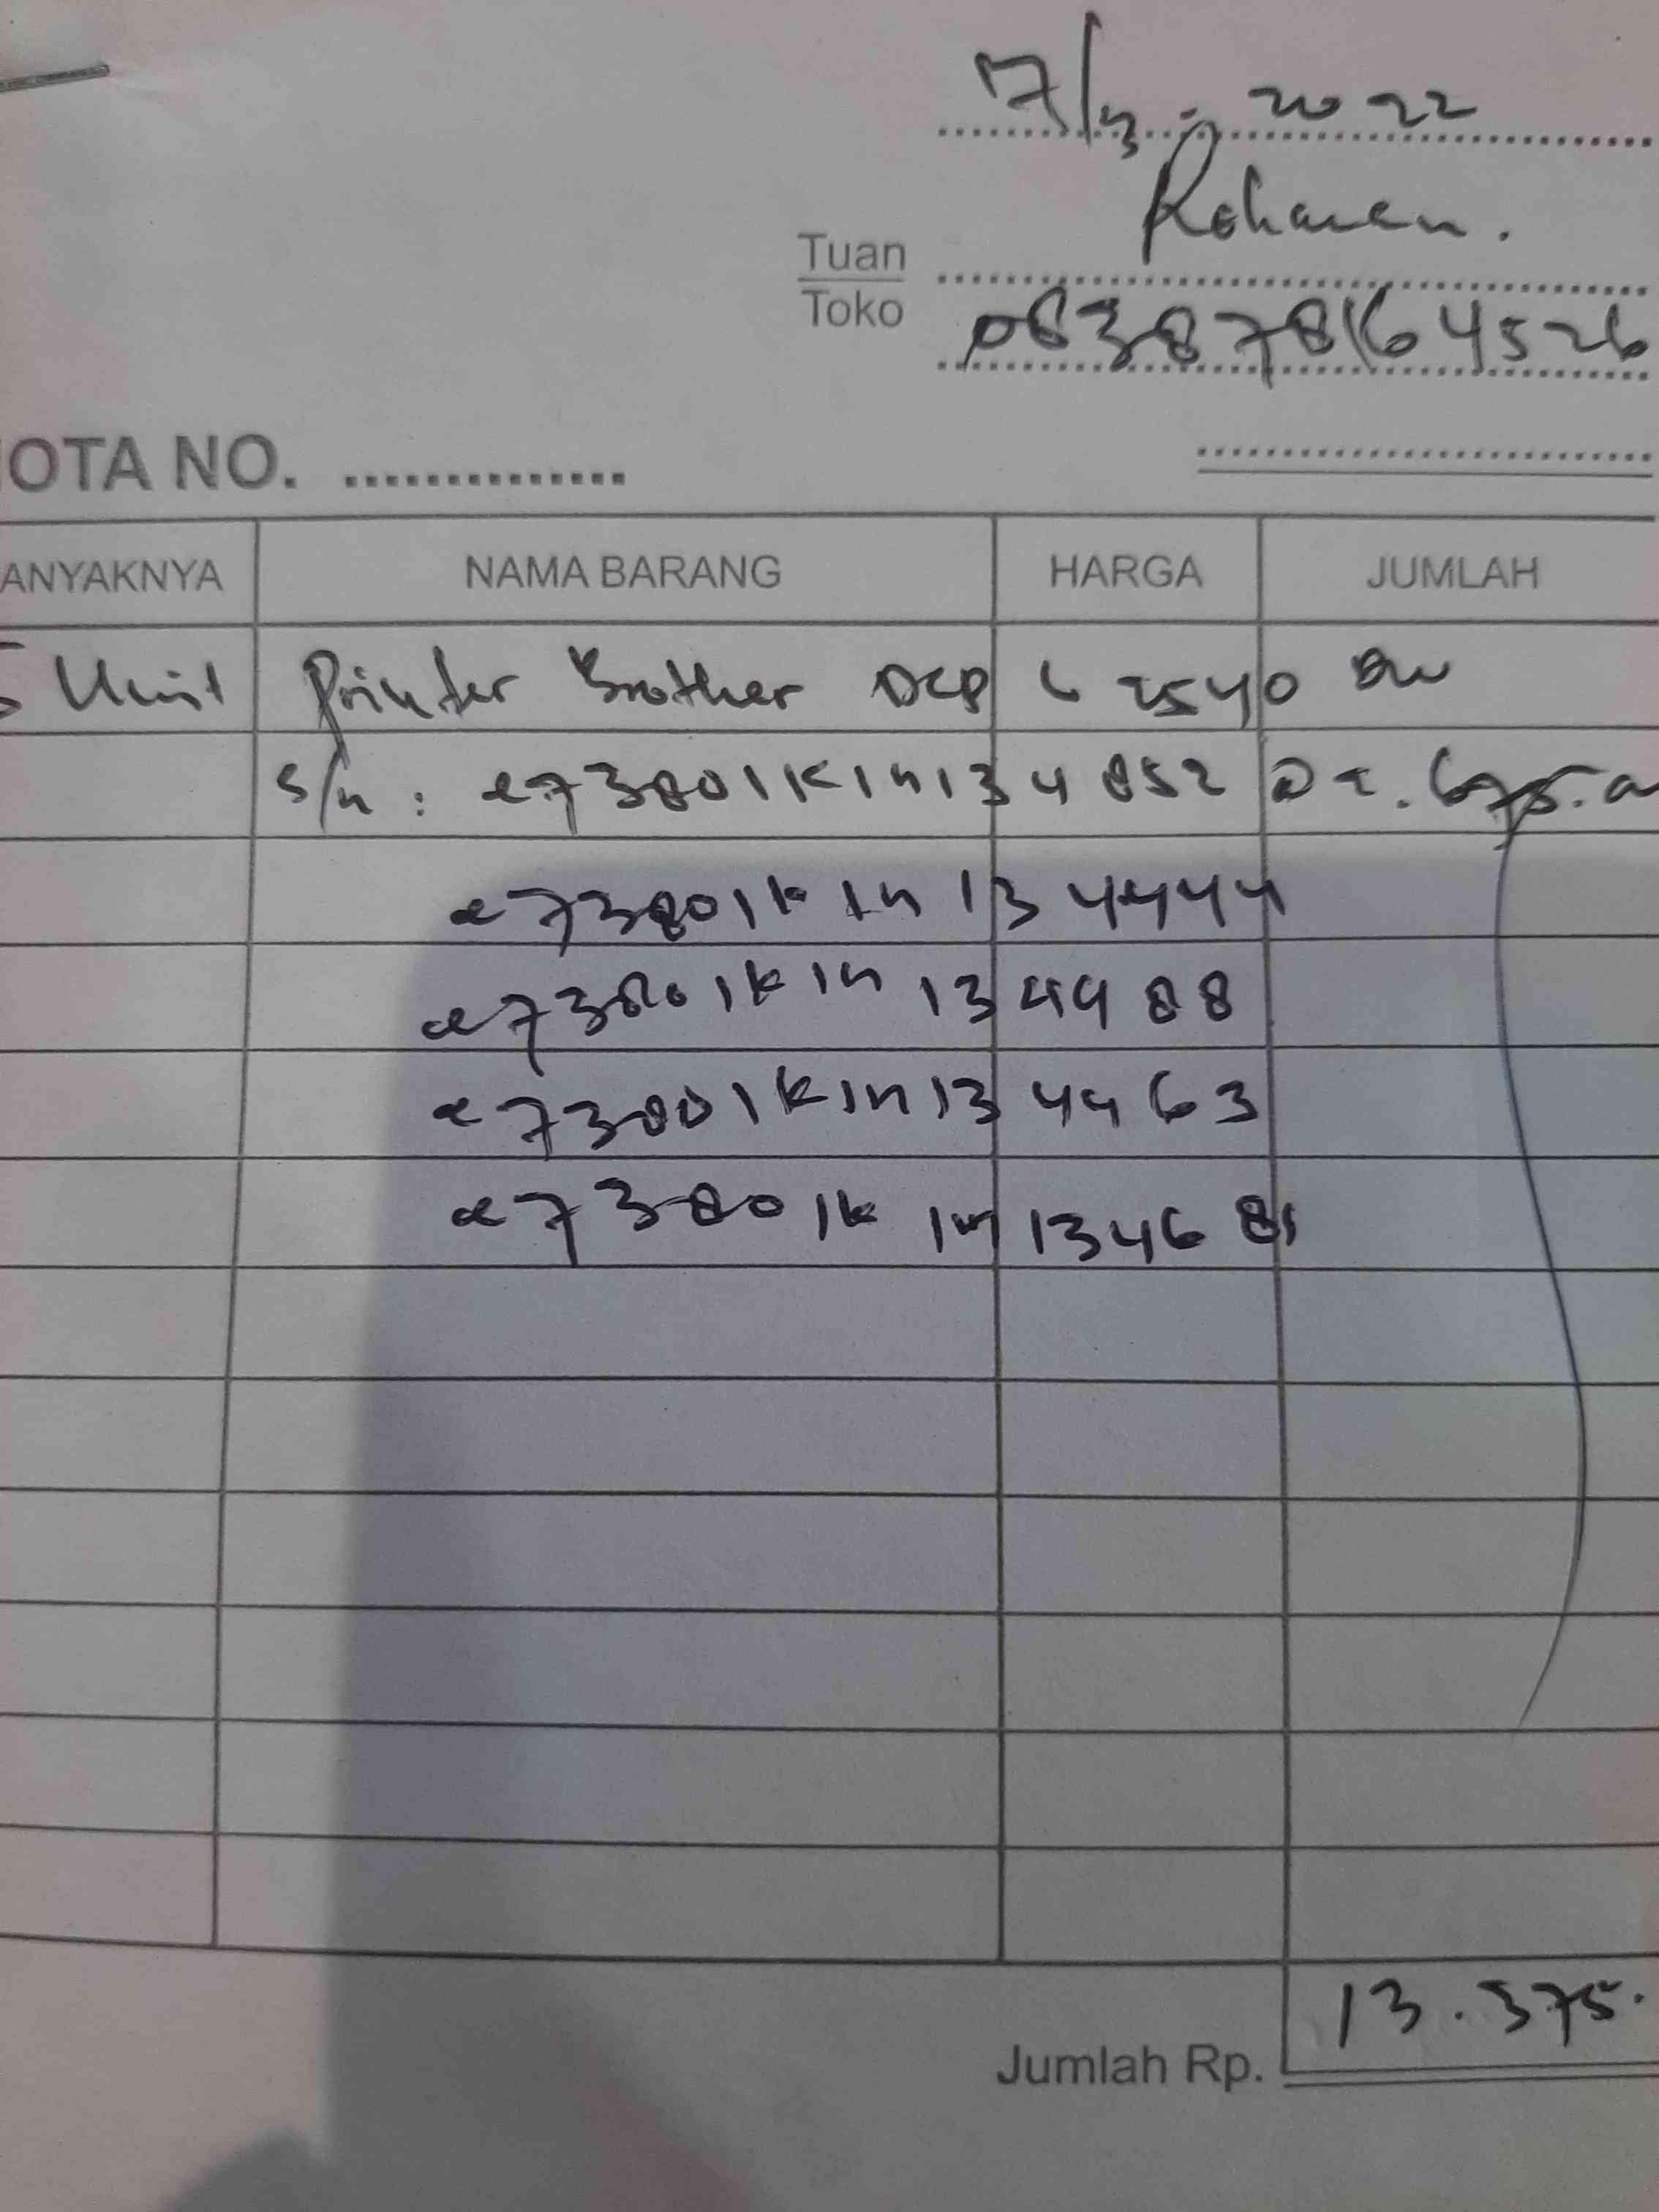 17/3 - 2022
Rohman.
Tuan
Toko
083878164526
OTA NO. ..............
ANYAKNYA NAMA BARANG HARGA JUMLAH
5 Unit Printer Brother DCP L 2540 DW
S/n : e73801K1n134852 @ 2.675.
e73801k1n134444
e73801k1n134488
e73801k1n134463
e73801k1n134681
Jumlah Rp. 13.375.